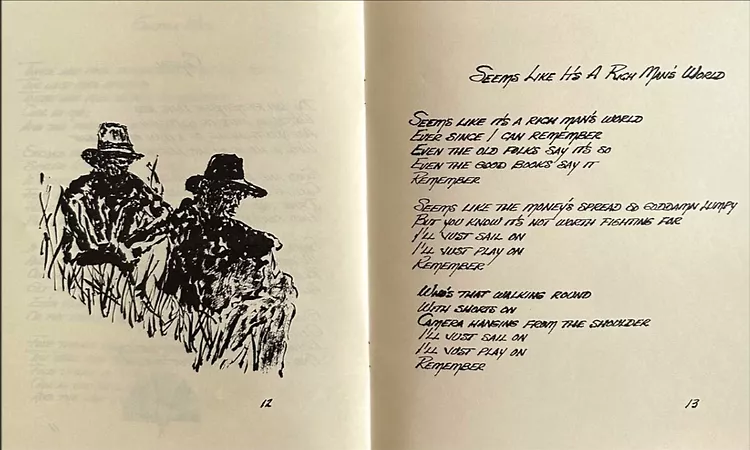 12
SEEMS LIKE IT'S A RICH MAN'S WORLD
SEEMS LIKE IT'S A RICH MAN'S WORLD
EVER SINCE I CAN REMEMBER
EVEN THE OLD FOLKS SAY IT'S SO
EVEN THE GOOD BOOKS SAY IT
REMEMBER
SEEMS LIKE THE MONEY'S SPREAD SO GODDAMN LUMPY
BUT YOU KNOW IT'S NOT WORTH FIGHTING FOR
I'LL JUST SAIL ON
I'LL JUST PLAY ON
REMEMBER
WHO'S THAT WALKING ROUND
WITH SHORTS ON
CAMERA HANGING FROM THE SHOULDER
I'LL JUST SAIL ON
I'LL JUST PLAY ON
REMEMBER
13